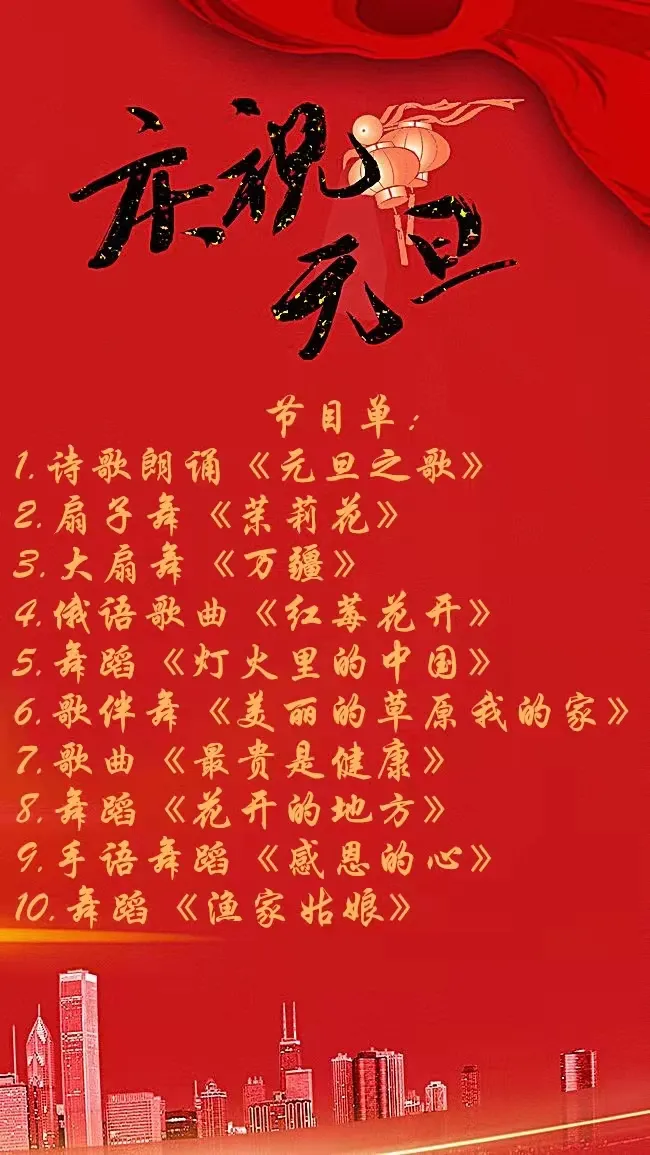 庆祝
元旦
节目单:
1.诗歌朗诵《元旦之歌》
2.扇子舞《茉莉花》
3.大扇舞《万疆》
4.俄语歌曲《红莓花开》
5.舞蹈《灯火里的中国》
6.歌伴舞《美丽的草原我的家》
7.歌曲《最贵是健康》
8.舞蹈《花开的地方》
9.手语舞蹈《感恩的心》
10.舞蹈《渔家姑娘》